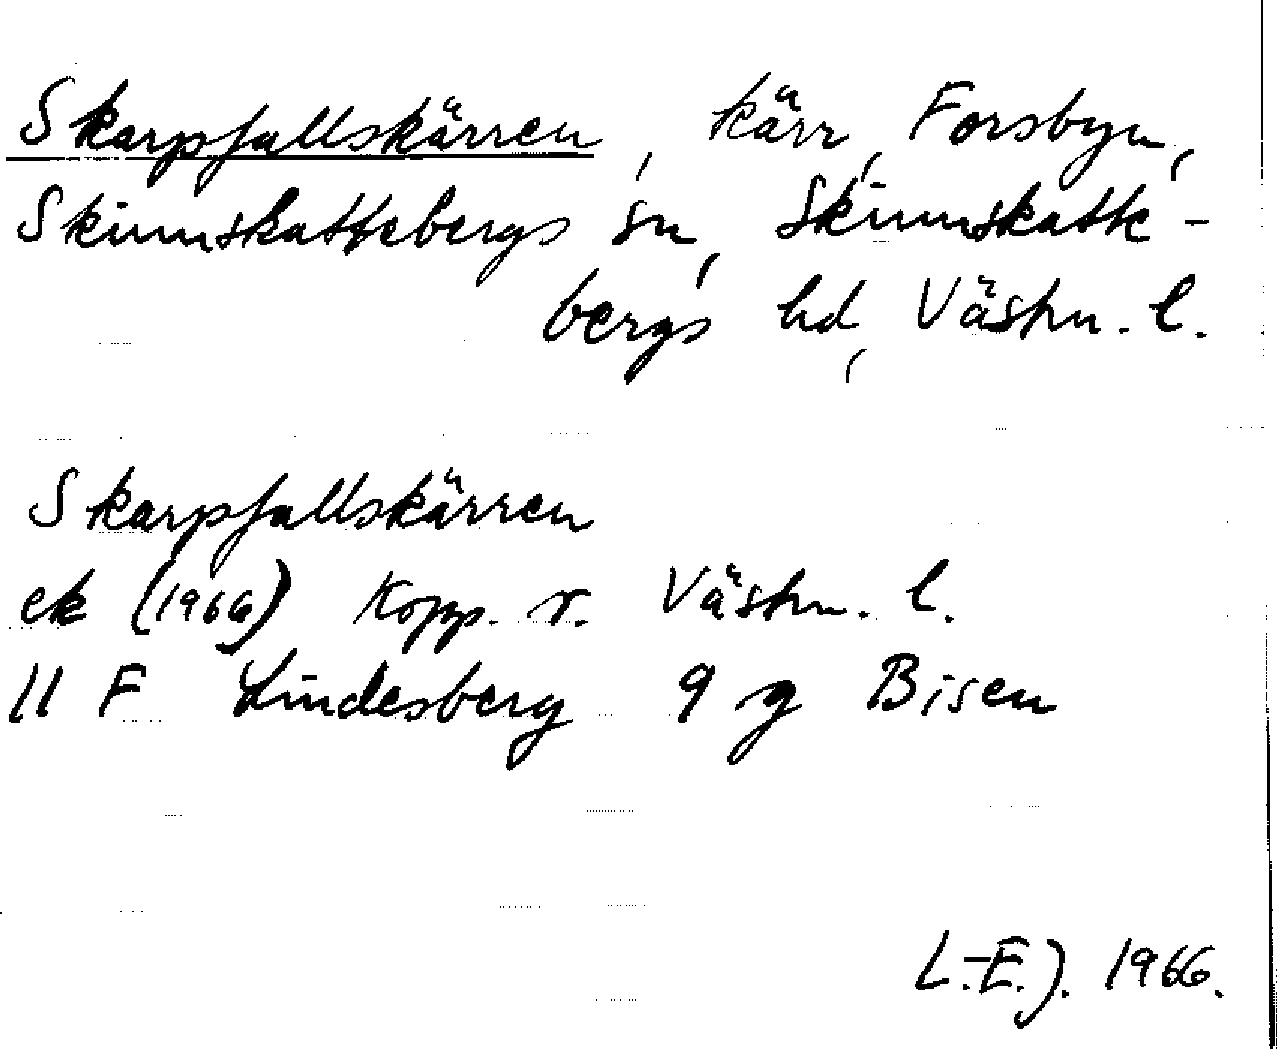 Skarpfallskärren, kärr, Forsbyn,
Skinnskattebergs sn, Skinnskatte-
bergs hd, Västm. l.
Skarpfallskärren
ek (1966) Kopp. r. Västm. l.
11 F Lindesberg 9 g Bisen
L.-E.J. 1966.